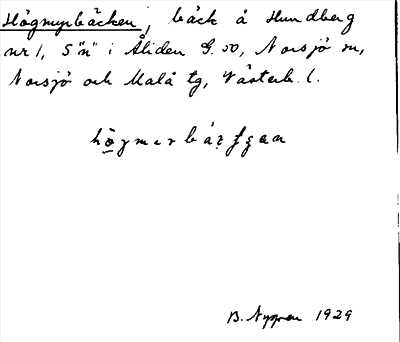 Högmyrbäcken, bäck å Hundberg
nr 1, S"n" i Åliden G. 50, Norsjö sn,
Norsjö och Malå tg, Västerb. l.
B. Nygren 1929